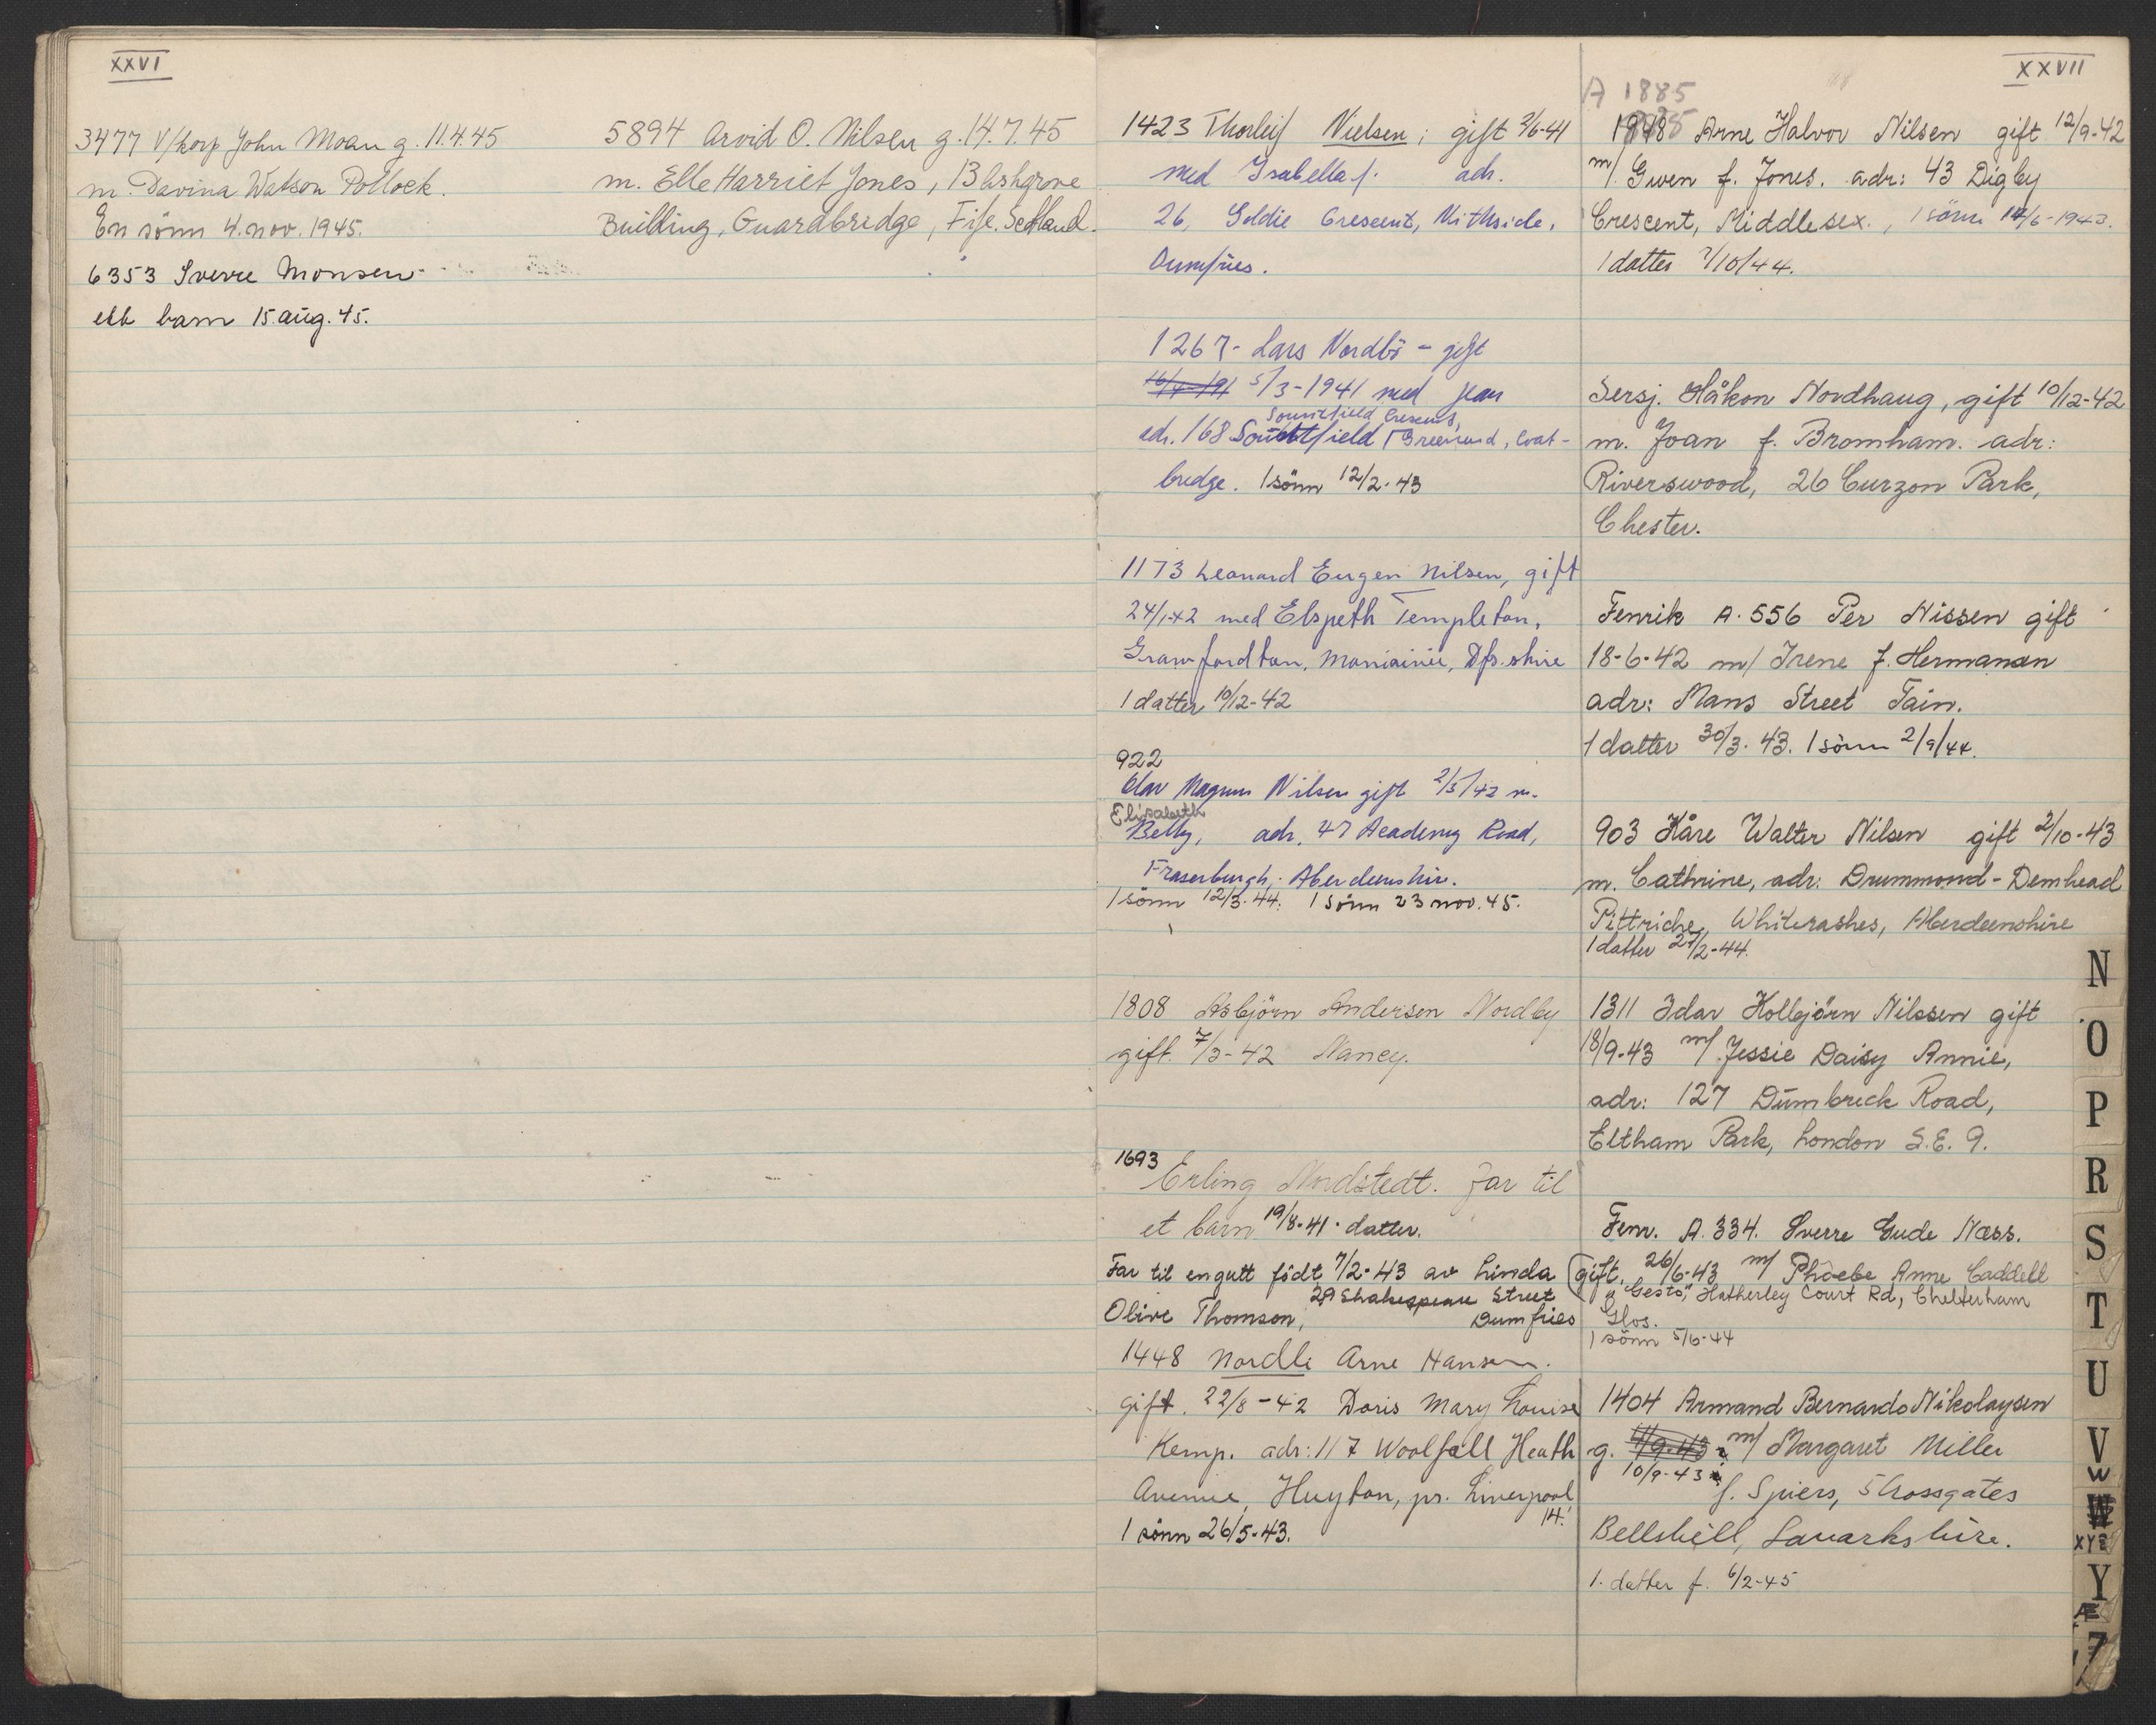 XXVI
3477 V/korp John Moan g. 11.4.45
m. Davina Watson Pollock.
En sönn 4. nov. 1945.
6353 Sverre Monsen
ett barn 15 aug. 45.
5894 Arvid O. Nilsen g. 14.7.45
m. Elle Harriet Jones, 13 Ashgrove
Building, Guardbridge, Fife. Scotland.
1423 Thorleif Nielsen; gift 2/6-41
med Isabella f. adr.
26, Goldie Crescent, Nithside,
Dumfries.
1267 - Lars Nordbö - gift
16/4-191 5/3-1941 med Jean
Sounttfield Crescent,
adr. 168 Field Greenend, Coat-
bridge. 1 sönn 12/2-43
1173 Leonard Eugen Nilsen, gift
24/1-42 med Elspeth Templeton,
Grawfordton, Moniaivie, Dfs.shire
1 datter 10/12-42
922
Olav Magnus Nilsen gift 2/5/42 m.
Elisabeth
Betty, adr. 47 Academy Road,
Fraserburgh, Aberdeenshir.
1 sönn 12/3-44. 1 Sönn 23 nov. 45.
1808 Asbjörn Andersen Nordby
gift. 7/3-42 Nancy.
1693
Erling Nordstedt. Far til
et barn 19/8-41. datter.
Far til en gutt födt 7/2-43 av Linda
29 Shakespeare Street
Olive Thomson, Dumfries
1448 Nordli Arne Hansen.
gift. 22/8-42 Doris Mary Louise
Kemp. adr: 117 Woolfall Heath
Avenue, Huyton, pr. Liverpool
14.
1 sönn 26/5-43.
XXVII
A 1885
1948 Arne Halvor Nilsen gift 12/9-42
m/ Gwen f. Jones. adr: 43 Digby
Crescent, Middlesex., 1 sönn 14/6-1943.
1 datter 7/10/44.
Sersj. Håkon Nordhaug, gift 10/12-42
m. Joan f. Bromham. adr:
Riverswood, 26 Curzon Park,
Chester.
Fenrik A. 556 Per Nissen gift
18-6-42 m/ Irene f. Hermansen
adr: Mans Street Tain.
1 datter 30/3-43. 1 sönn 2/9/44.
903 Kåre Walter Nilsen gift 2/10-43
m. Cathrine, adr: Drummond - Demhead
Pittriche, Whiterashes, Aberdeenshire
1 datter 27/2-44.
1311 Idar Kolbjörn Nilssen gift
18/9-43 m/ Jessie Daisy Annie,
adr: 127 Dumbreck Road,
Eltham Park, London S.E. 9.
Fenr. A. 334. Sverre Gude Næss.
gift, 26/6-43 m/ Phoebe Anne Caddell
"Gesto", Hatherley Court Rd, Cheltenham
Glos.
1 sönn 5/6-44
1404 Armand Bernardo Nikolaysen
g. 11/9-43 m/ Margaret Miller
10/9-43
f. Spiers, 5 Crossgates
Bellshill, Lanarkshire.
1. datter f. 6/2-45
N
O
P
R
S
T
U
V
W
W
XYZ
Y
Æ